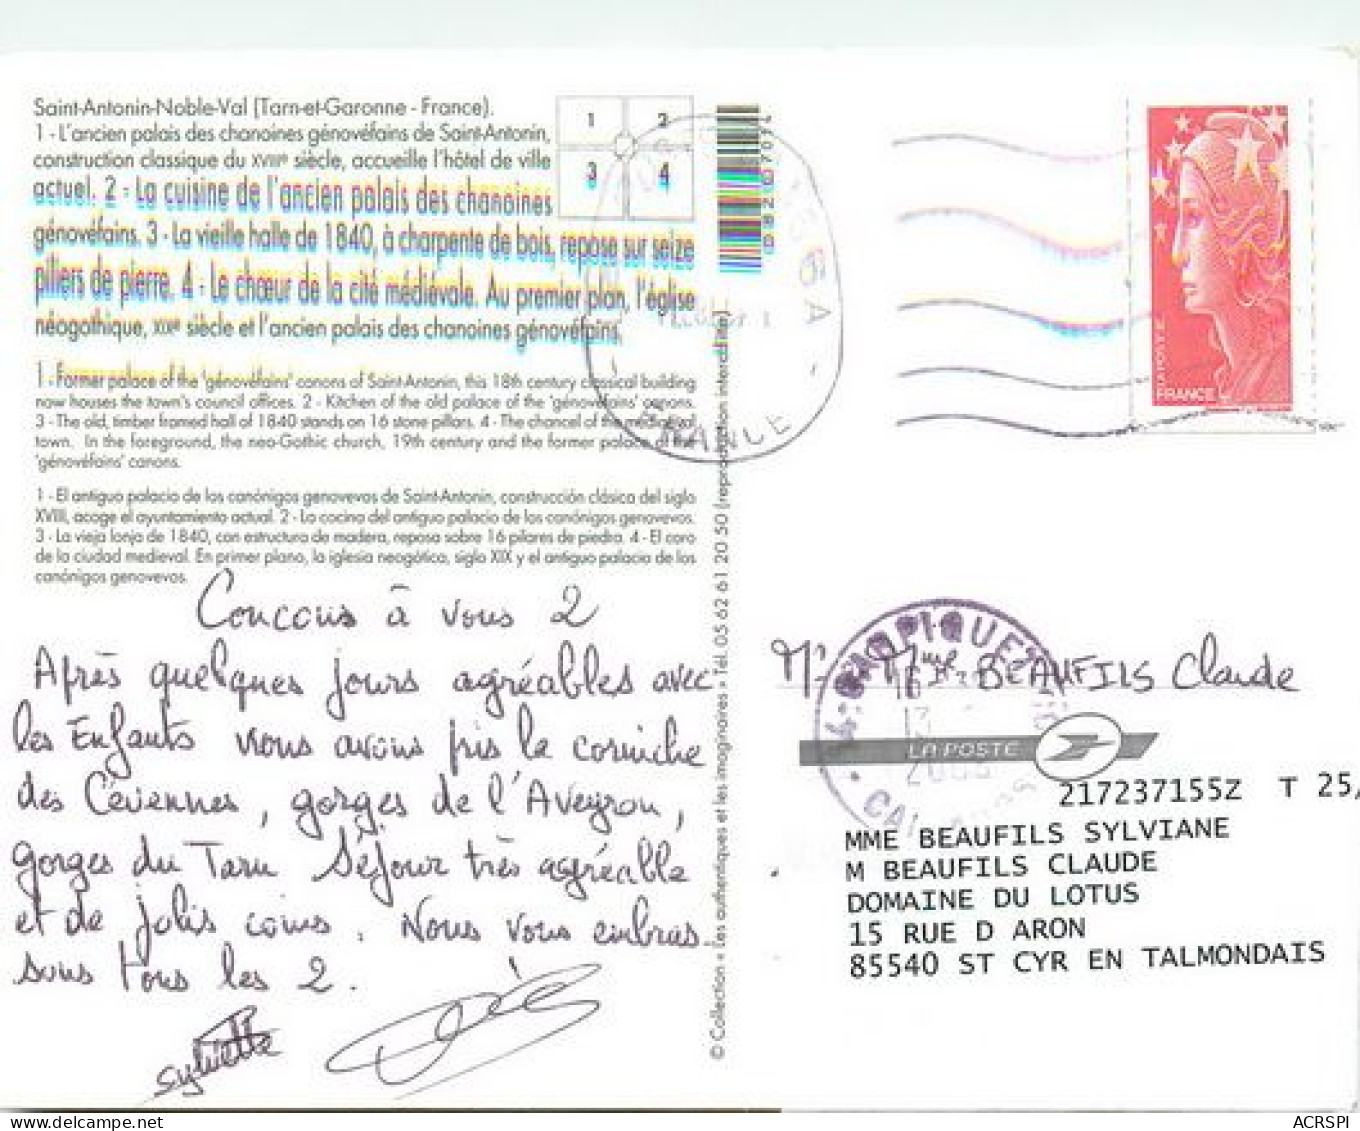 Saint-Antonin-Noble-Val (Tarn-et-Garonne - France).
1 - L'ancien palais des chanoines génovéfains de Saint-Antonin,
construction classique du XVIIIe siècle, accueille l'hôtel de ville
actuel. 2 - La cuisine de l'ancien palais des chanoines
génovéfains. 3 - La vieille halle de 1840, à charpente de bois, repose sur seize
piliers de pierre. 4 - Le chœur de la cité médiévale. Au premier plan, l'église
néogothique, XIXe siècle et l'ancien palais des chanoines génovéfains.
1 2
3 4
1 - Former palace of the 'génovéfains' canons of Saint-Antonin, this 18th century classical building
now houses the town's council offices. 2 - Kitchen of the old palace of the 'génovéfains' canons.
3 - The old, timber framed hall of 1840 stands on 16 stone pillars. 4 - The chancel of the medieval
town. In the foreground, the neo-Gothic church, 19th century and the former palace of the
'génovéfains' canons.
1 - El antiguo palacio de los canónigos genovevos de Saint-Antonin, construcción clásica del siglo
XVIII, acoge el ayuntamiento actual. 2 - La cocina del antiguo palacio de los canónigos genovevos.
3 - La vieja lonja de 1840, con estructura de madera, reposa sobre 16 pilares de piedra. 4 - El coro
de la ciudad medieval. En primer plano, la iglesia neogótica, siglo XIX y el antiguo palacio de los
canónigos genovevos.
Coucous à vous 2
Après quelques jours agréables avec
les Enfants nous avons pris la corniche
des Cévennes, gorges de l'Aveyron,
gorges du Tarn Séjour très agréable
et de jolis coins. Nous vous embras-
sons tous les 2.
sylvette
© Collection « Les authentiques et les imaginaires » Tél. 05 62 61 20 50 (reproduction interdite)
FRANCE
LA POSTE
FRANCE
Mr Mme BEAUFILS Claude
LA POSTE
217237155Z T 25,
MME BEAUFILS SYLVIANE
M BEAUFILS CLAUDE
DOMAINE DU LOTUS
15 RUE D ARON
85540 ST CYR EN TALMONDAIS
ACRSPI